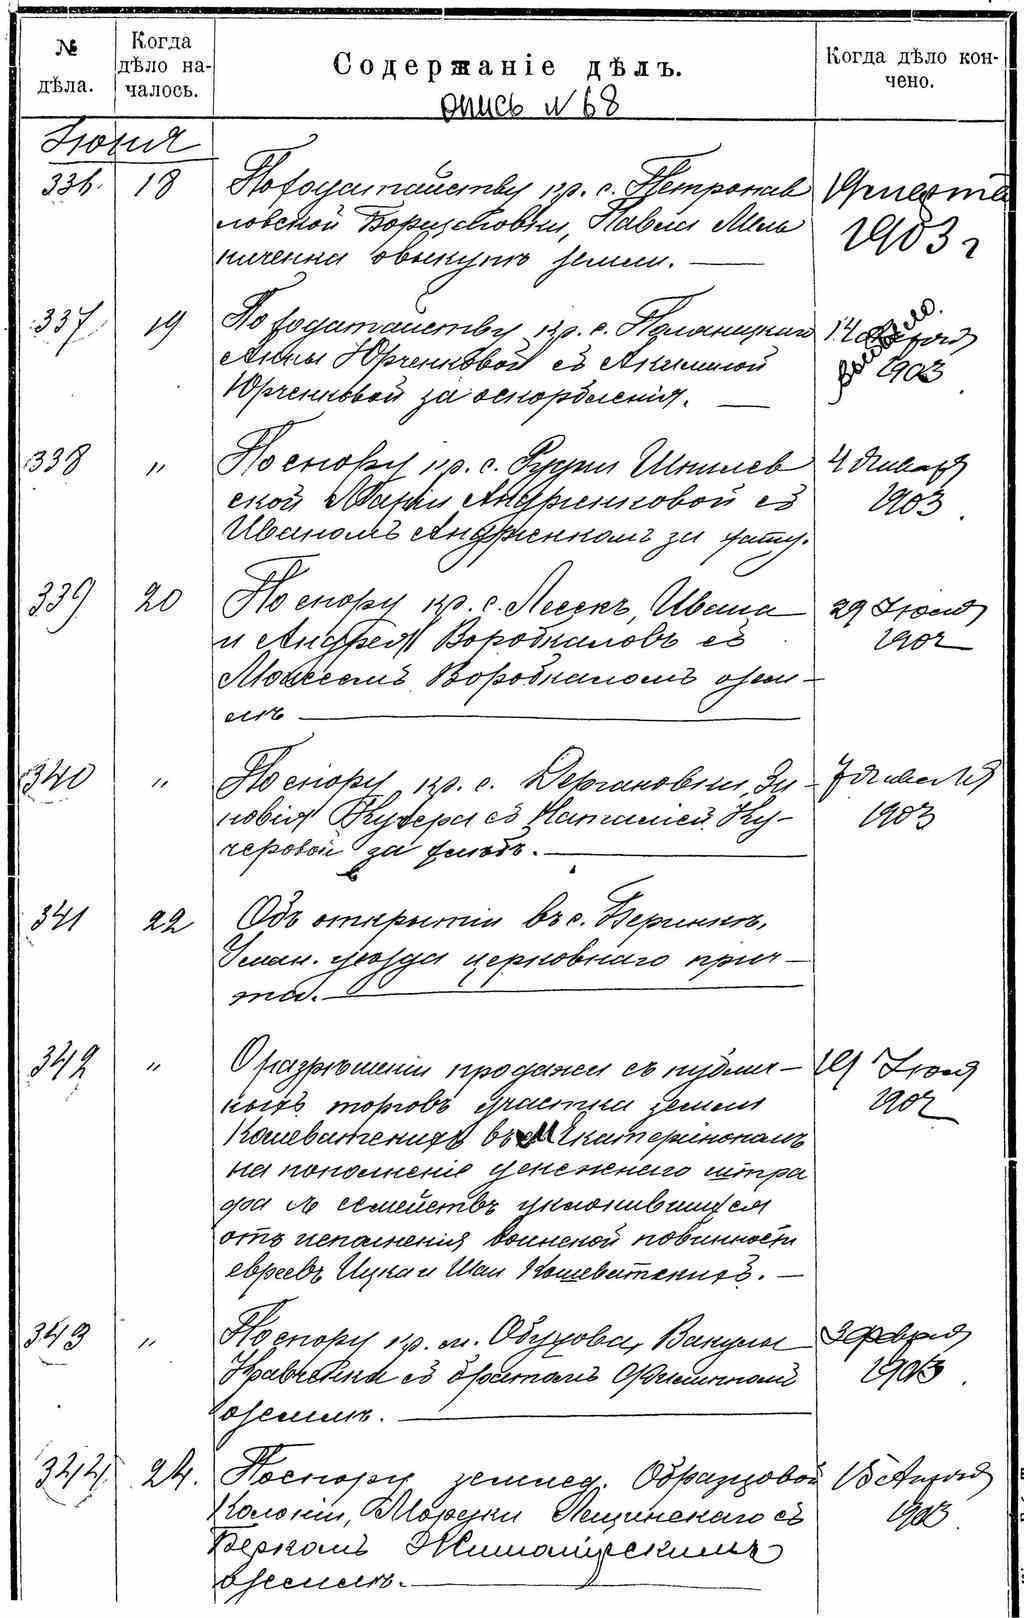 № дѣла.
Когда дѣло началось.
Содержаніе дѣлъ.
Когда дѣло кончено.
опись №68
Іюня
336. 18 По ходатайству кр. с. Петропав
ловской Борщаговки, Павла Мель
ниченка о выкупѣ земли. —
1903 г
337 19 По ходатайству кр. с.
Анны Юрченковой съ Акилиной
Юрченковой за оскорбленія. —
14
1903
выбыло.
338 " По спору кр. с. Рудки
ской Маріи Андріенковой съ
Иваномъ Андріенкомъ за хату.
4 Января
1903
339 20 По спору кр. с. Лесекъ, Ивана
и Андрея Воробкаловъ съ
Моисеемъ Воробкаломъ о зем-
лѣ —
29 Іюля
1902
340 " По спору кр. с. Дергановки, Зи-
новія Кучера съ Наталіей Ку-
черовой за хлѣбъ. —
7 Января
1903
341 22 Объ открытіи въ с.
Уман. уѣзда церковнаго прич-
та. —
342 " О разрѣшеніи продажи съ публич-
ныхъ торговъ участка земли
Кошеватскихъ въ м Екатеринополѣ
на пополненіе денежнаго штра
фа съ семействъ уклонившихся
отъ исполненія воинской повинности
евреевъ Ицка и Шаи Кошеватскихъ. —
19 Іюля
1902
343 " По спору кр. м. Обухова, Вакулы
Кравченка съ братомъ
о землѣ. —
3 Февраля
1903
344. 24. По спору землед. Образцовой
Колоніи, Мордки Лещинскаго съ
Беркомъ Житомирскимъ
о землѣ. —
15 Апрѣля
1903